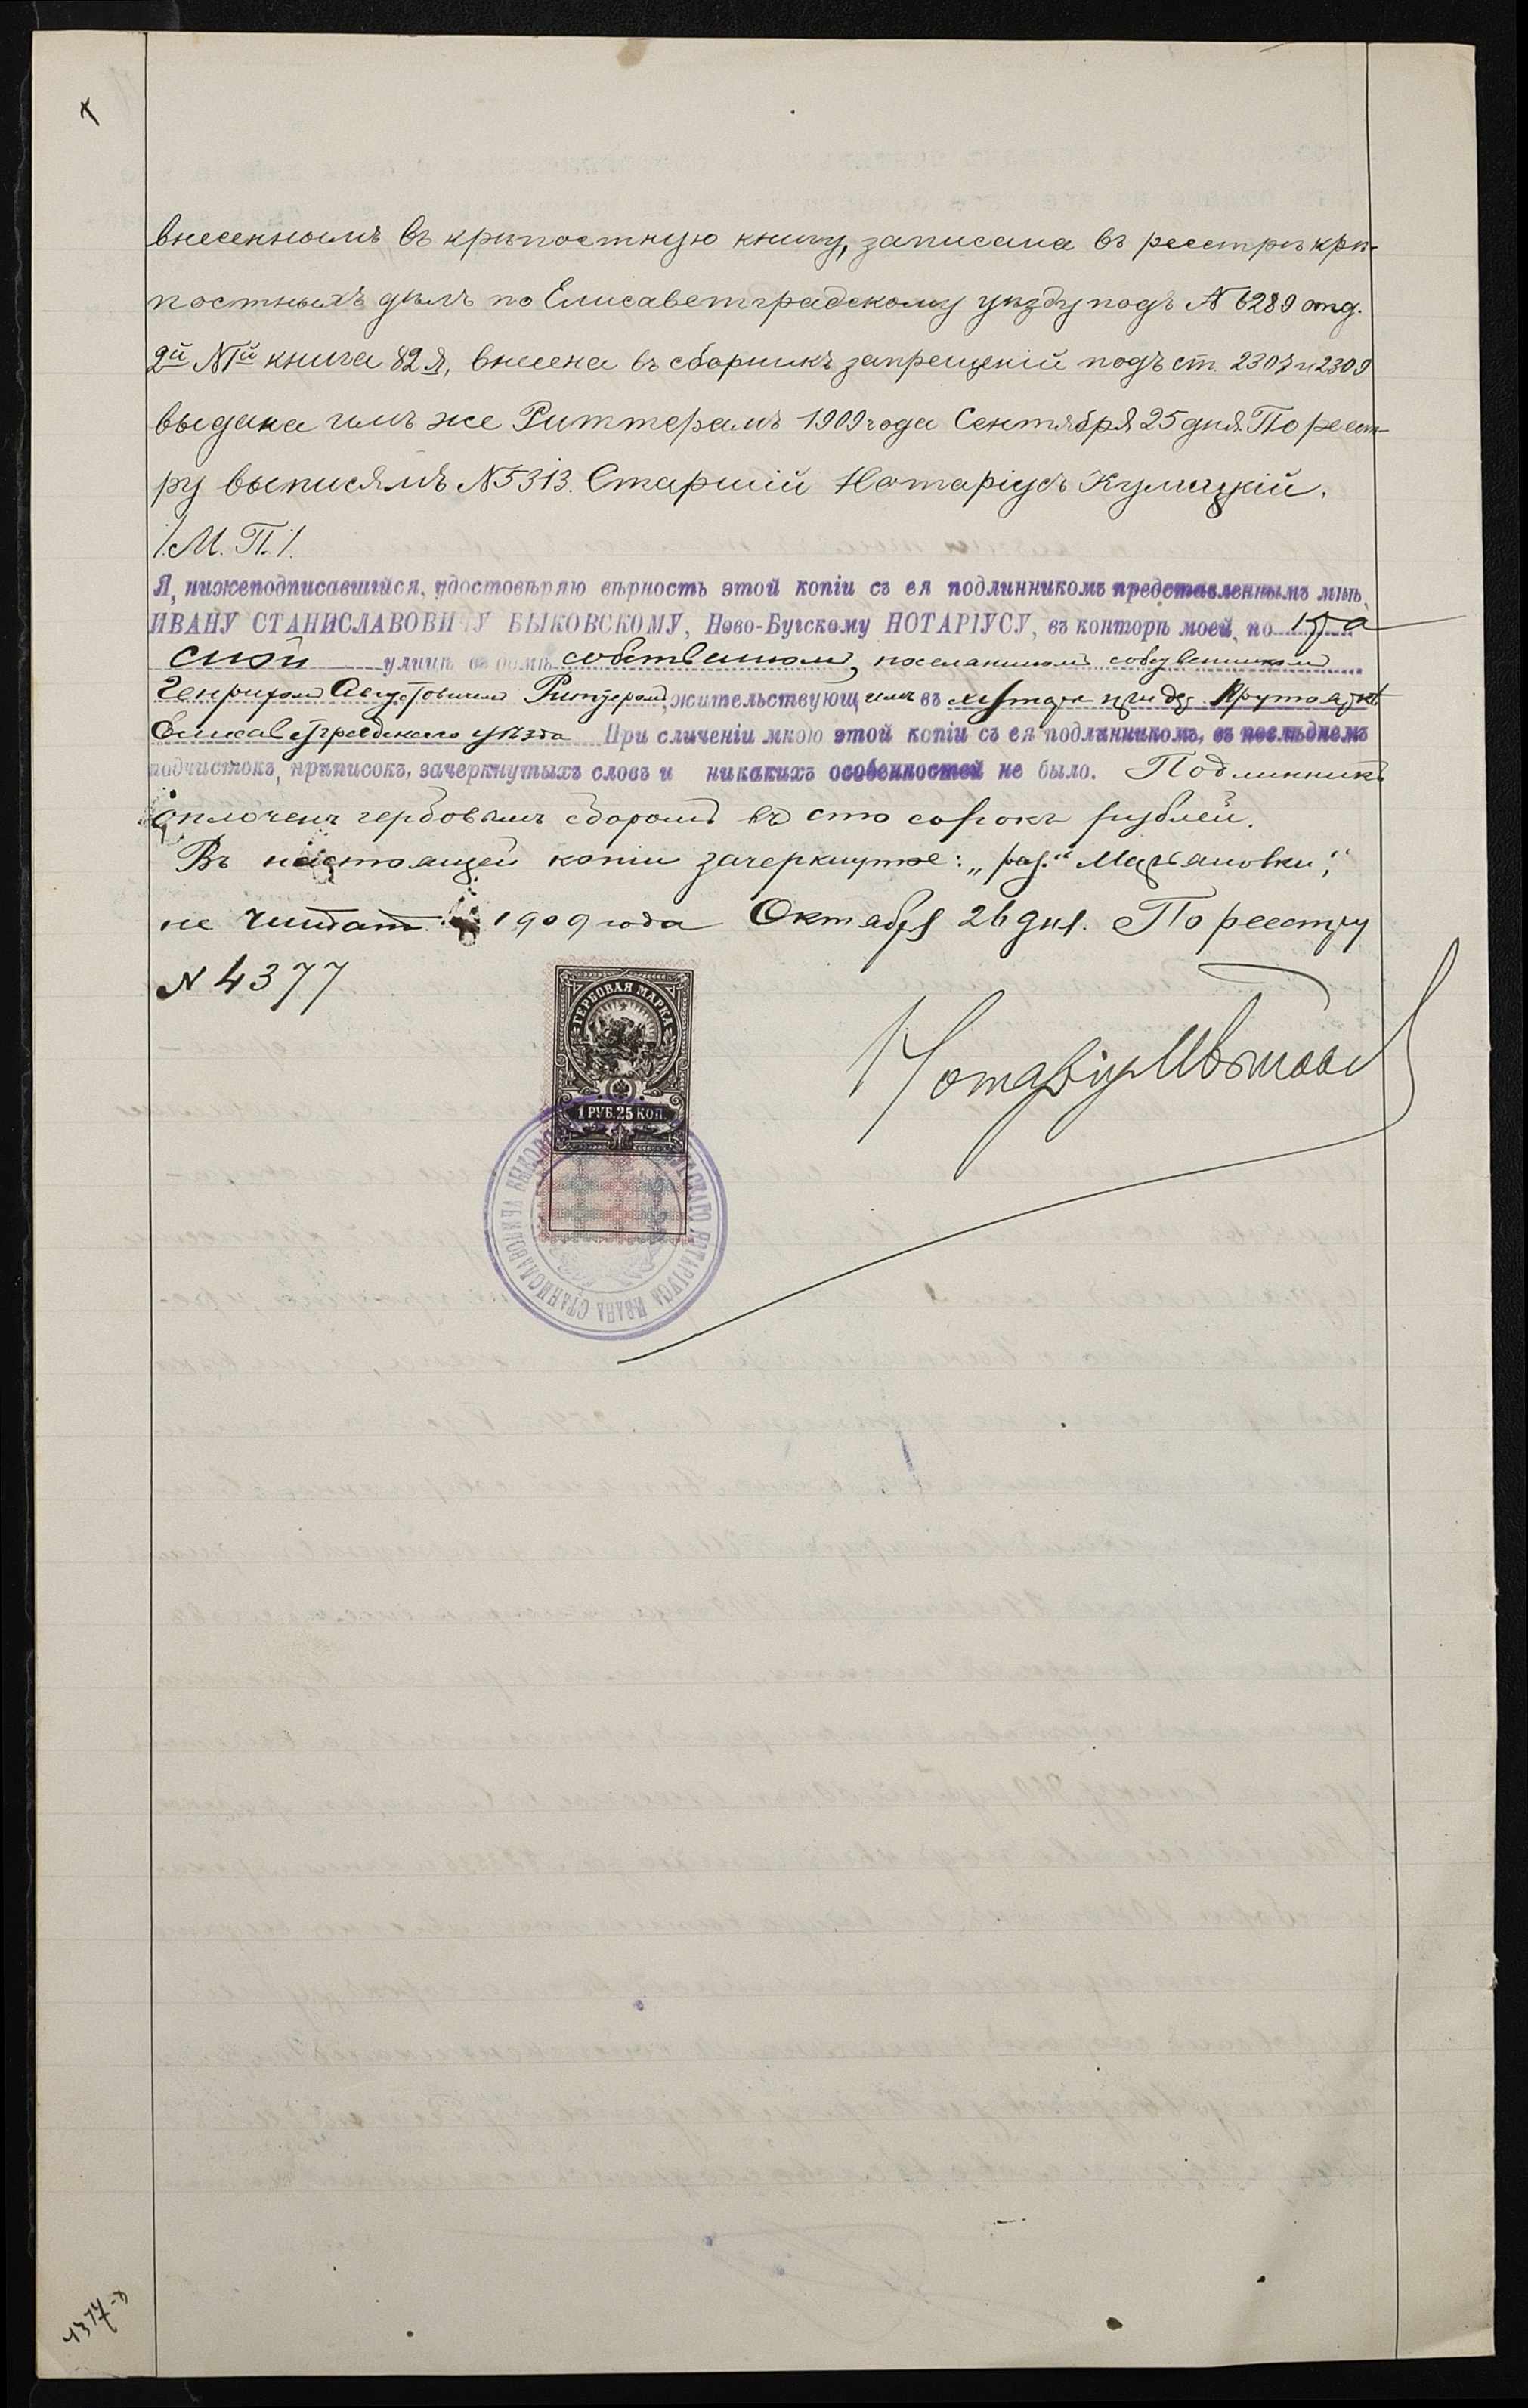 внесеннымъ въ крѣпостную книгу, записана въ реестръ крѣ-
постныхъ дѣлъ по Елисаветградскому уѣзду подъ № 6289 отд.
2й № 1й книга 82я, внесена въ сборникъ запрещеній подъ ст. 2307 и 2309
выдана имъ же Риттерамъ 1909 года Сентября 25 дня. По реест-
ру выписямъ № 5313. Старшій Нотаріусъ Кулицкій.
/М. П./.
Я, нижеподписавшійся, удостовѣряю вѣрность этой копіи съ ея подлинникомъ представленнымъ мнѣ,
ИВАНУ СТАНИСЛАВОВИЧУ БЫКОВСКОМУ, Ново-Бугскому НОТАРІУСУ, въ конторѣ моей, по
ской улицѣ въ домѣ собственном, поселяниномъ собственникомъ
Генрихом Августовичем Риттеромъ, жительствующимъ въ хуторѣ при дер.
Елисаветградскаго уѣзда При сличеніи мною этой копіи съ ея подлинникомъ, въ послѣднемъ
подчистокъ, приписокъ, зачеркнутыхъ словъ и никакихъ особенностей не было. Подлинникъ
оплоченъ гербовымъ сборомъ въ сто сорокъ рублей.
Въ настоящей копіи зачеркнутое:
не читать. 1909 года Октября 26 дня. По реестру
№ 4377
ГЕРБОВАЯ МАРКА
1 РУБ. 25 КОП.
НОТАРІУСА ИВАНА СТАНИСЛАВОВИЧА БЫКОВСК
Нотаріус